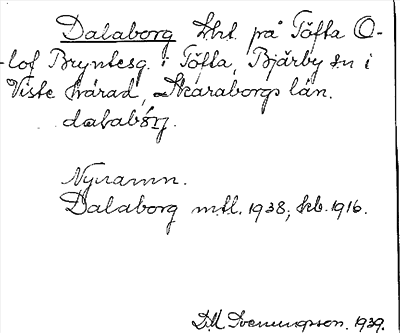 Dalaborg lht. på Töfta O-
lof Bryntesg. i Töfta, Bjärby sn i
Viste härad, Skaraborgs län.
dalabórj.
Nynamn.
Dalaborg mtl. 1938; kb. 1916.
Svenungsson. 1939.